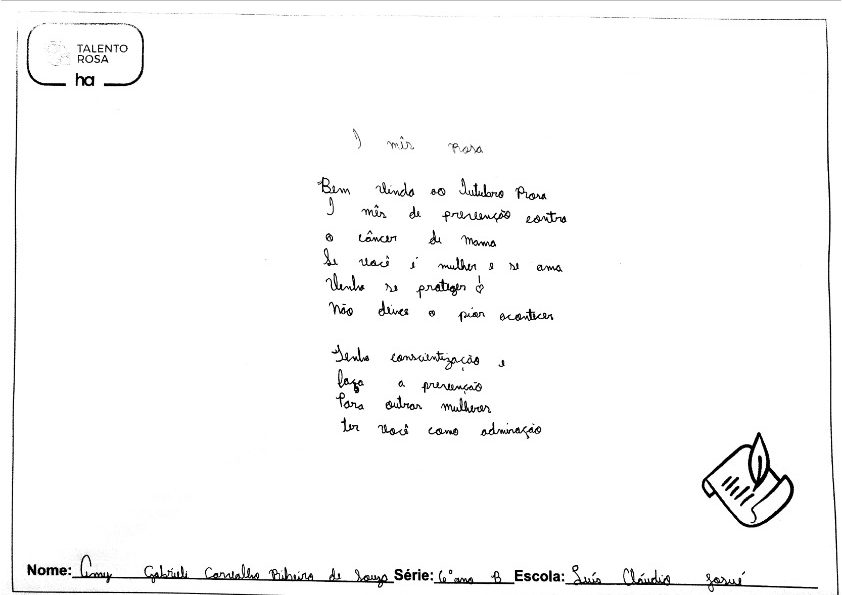 TALENTO
ROSA
ha
O mês Rosa
Bem Vindo ao Outubro Rosa
O mês de prevenção contra
o câncer de mama
Se você é mulher e se ama
Venha se proteger!
Não deixe o pior acontecer
Tenha conscientização e
faça a prevenção
Para outras mulheres
ter você como admiração
Nome: Amy Gabrieli Carvalho Ribeiro de Souza Série: 6º ano B Escola: Luís Cláudio Josué